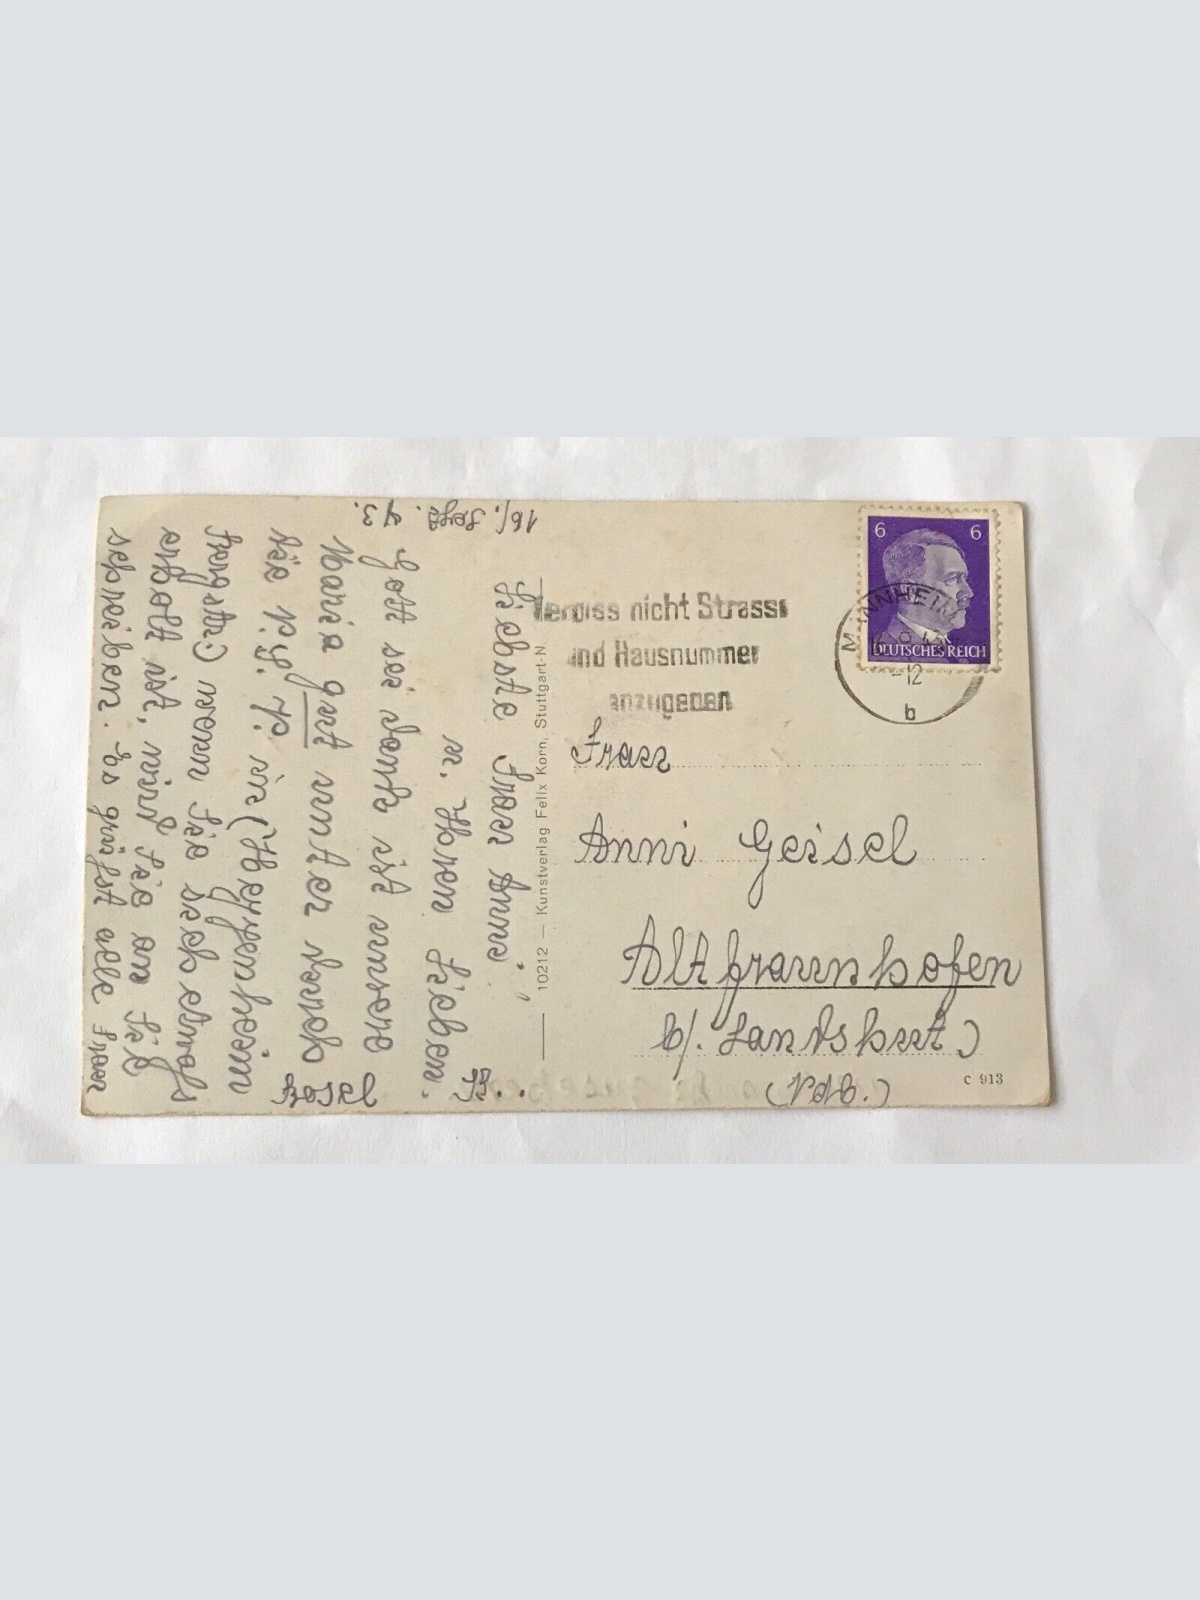 16. Sept. 43.
Liebste Frau Anni
u. Ihren Lieben.
Gott sei Dank ist unsere
Maria gut unter
die
in (Heppenheim
Bergstr.) wenn sie sich etwas
erholt ist, wird sie an Sie
schreiben. Es grüßt alle Frau
Vergiss nicht Strasse
und Hausnummer
anzugeben
6 6
DEUTSCHES REICH
MANNHEIM
-12
b
Frau
Anni Geisel
Altfraunhofen
b/. Landshut)
(Ndb.)
10212 — Kunstverlag Felix Korn, Stuttgart-N
C 913